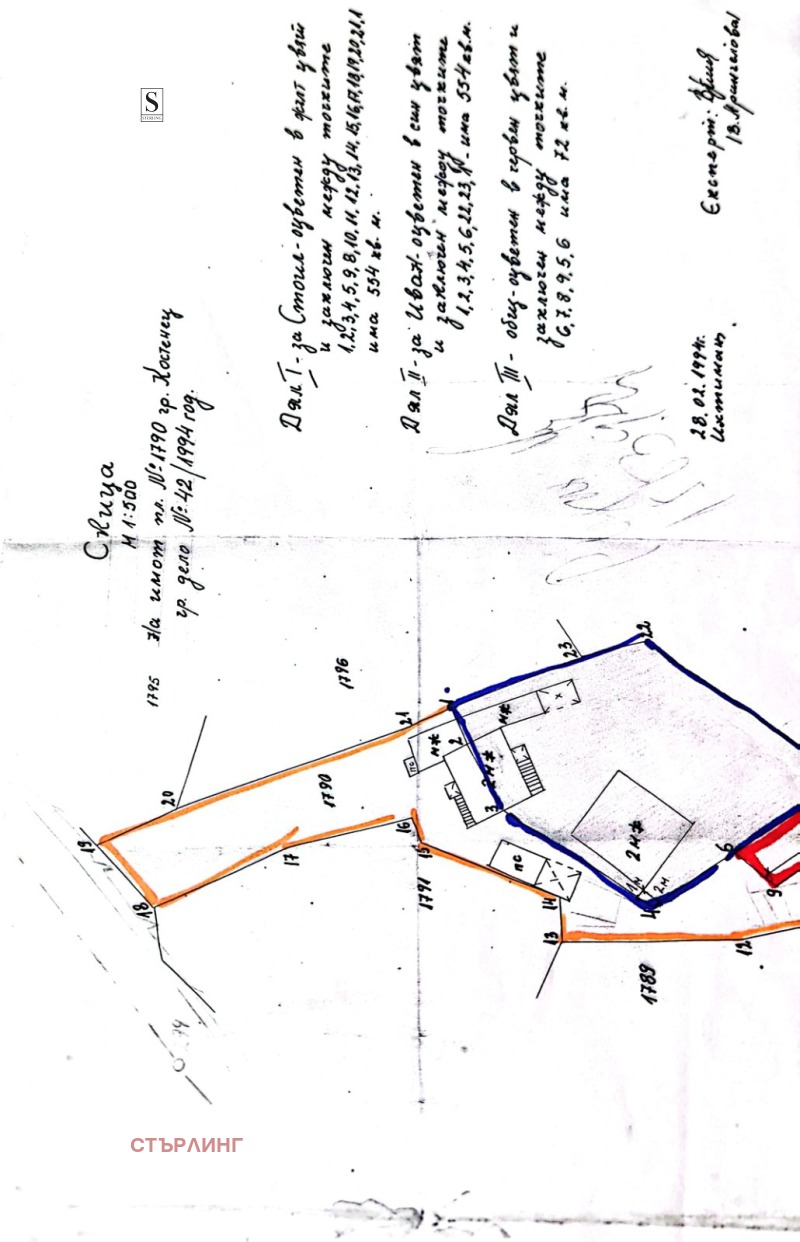 S
STERLING
Скица
М 1:500
на имот пл. № 1790 гр. Костенец
гр. дело № 42/1994 год.
Дял I - за Стоил - оцветен в жълт цвят
и заключен между точките
1,2,3,4,5,9,8,10,11,12,13,14,15,16,17,18,19,20,21,1
има 554 кв. м.
Дял II - за Иван - оцветен в син цвят
и заключен между точките
1,2,3,4,5,6,22,23,1 - има 554 кв.м.
Дял III - общ - оцветен в червен цвят и
заключен между точките
6,7,8,9,5,6 има 72 кв. м.
28.02.1994г.
Ихтиман.
Експерт:
1795
1796
1790
1791
1789
19
20
18
17
16
15
21
1
2
3
14
13
12
4
6
9
23
22
пс
мж
мж
2мж
х
пс
2мж
1м
2м
74
СТЪРЛИНГ